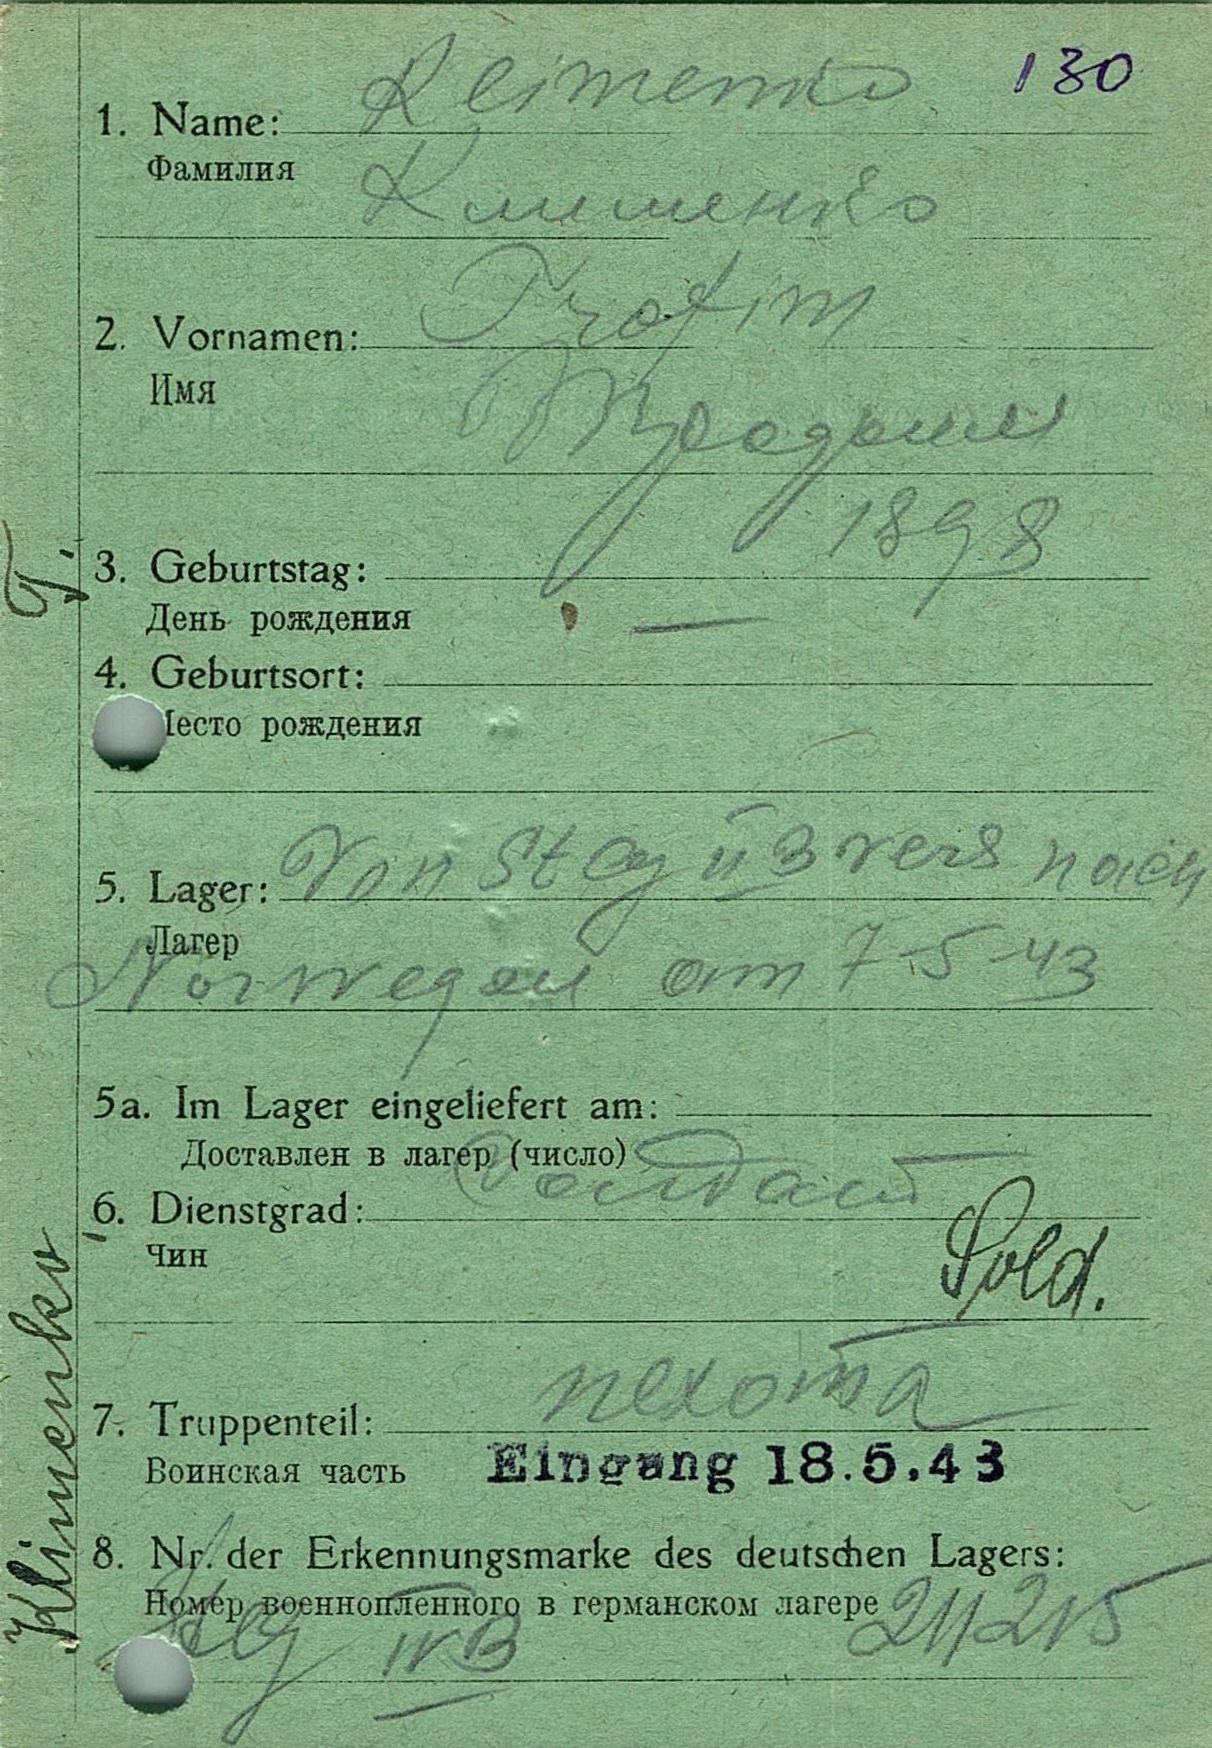 130
1. Name: Kleimenko
Фамилия Клименко
2. Vornamen: Trofim
Имя
1898
3. Geburtstag:
День рождения —
4. Geburtsort:
Место рождения
5. Lager: Von Stlg II B vers nach
Лагер
Norwegen am 7-5-43
5a. Im Lager eingeliefert am:
Доставлен в лагер (число)
6. Dienstgrad: Солдат
Чин Sold.
7. Truppenteil: пехота
Воинская часть Eingang 18.5.43
8. Nr. der Erkennungsmarke des deutschen Lagers:
Номер военнопленного в германском лагере 211215
Stlg IV B
Klimenko T.